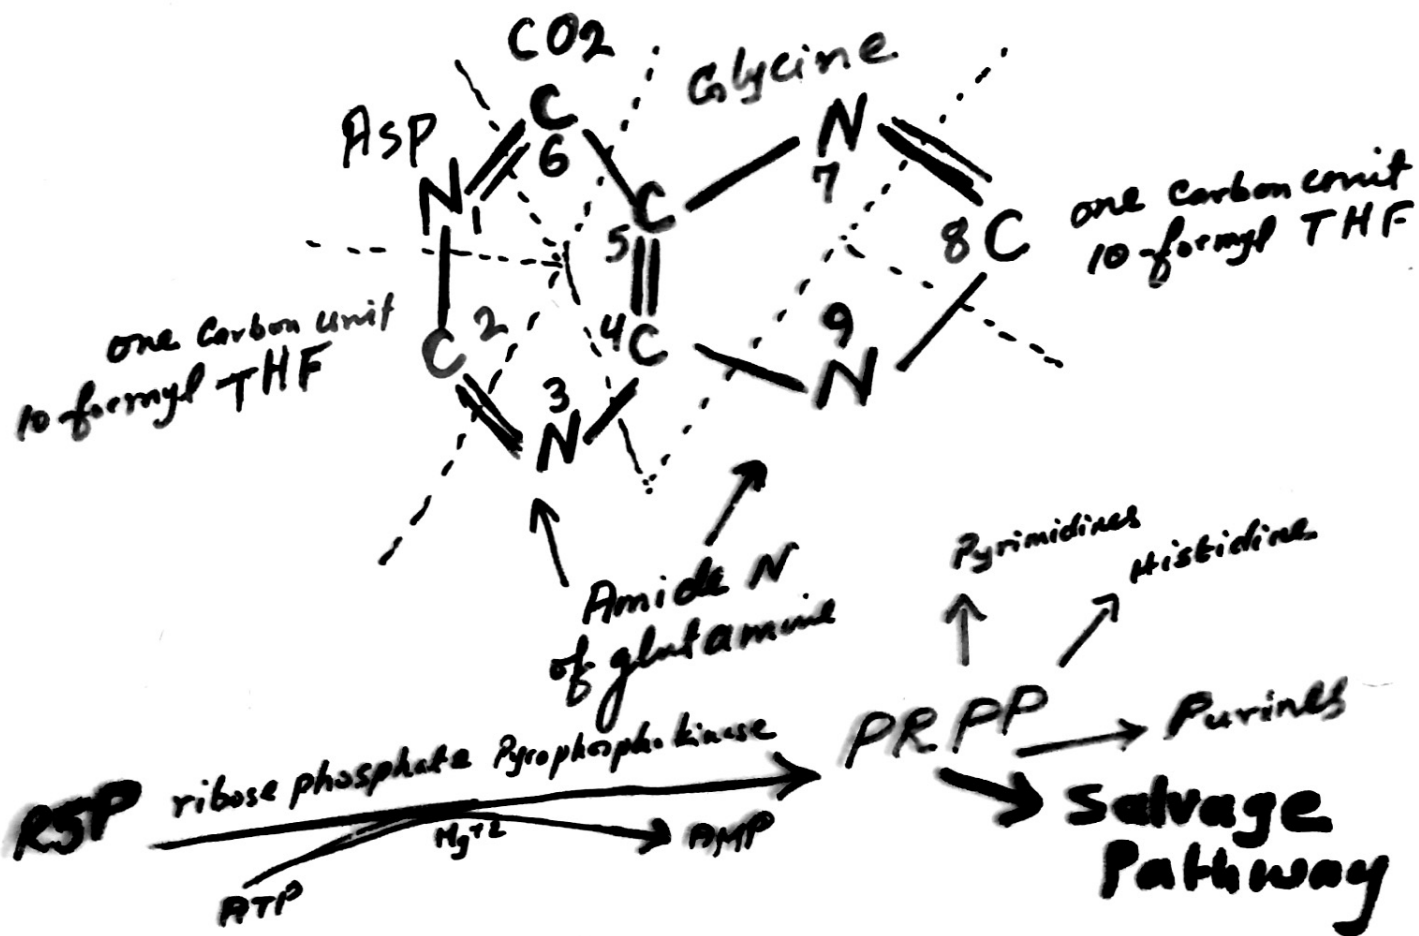 CO2
Glycine
Asp
C
6
N
7
N
1
C
5
8 C
one carbon unit
10-formyl THF
one carbon unit
10-formyl THF
C
2
4
C
9
N
3
N
Amide N
of glutamine
Pyrimidines
Histidine
PRPP
Purines
Salvage
Pathway
R5P
ribose phosphate Pyrophosphokinase
Mg+2
ATP
AMP